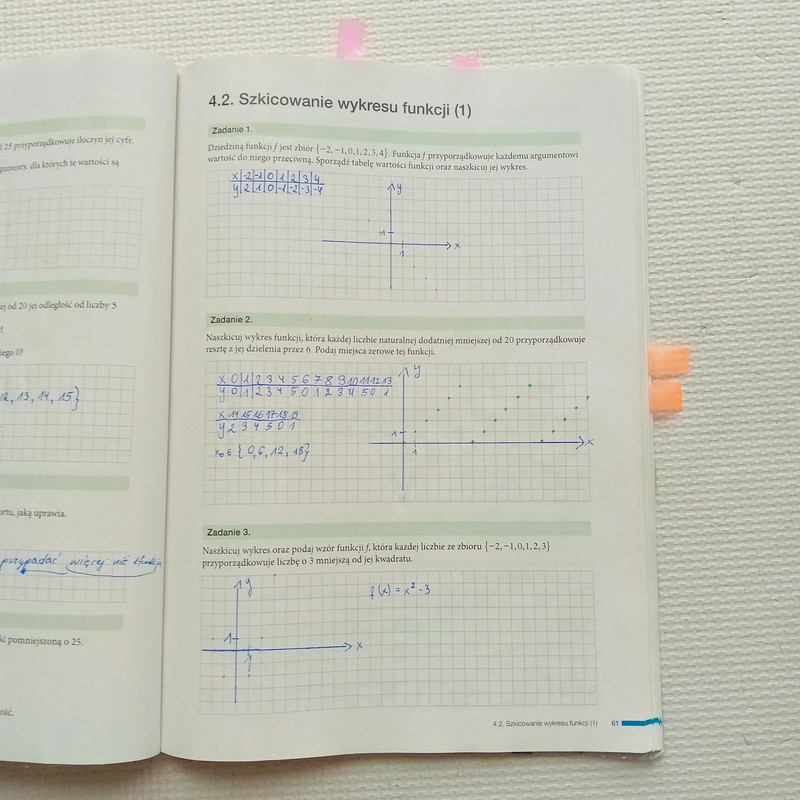 25 przyporządkowuje iloczyn jej cyfr.
dla których te wartości są
od 20 jej odległość od liczby 5
?
0?
12, 13, 14, 15}
jaką uprawia.
przypadać więcej niż
pomniejszoną o 25.
4.2. Szkicowanie wykresu funkcji (1)
Zadanie 1.
Dziedziną funkcji f jest zbiór {−2, −1, 0, 1, 2, 3, 4}. Funkcja f przyporządkowuje każdemu argumentowi
wartość do niego przeciwną. Sporządź tabelę wartości funkcji oraz naszkicuj jej wykres.
x -2 -1 0 1 2 3 4
y 2 1 0 -1 -2 -3 -4
y
1
x
1
Zadanie 2.
Naszkicuj wykres funkcji, która każdej liczbie naturalnej dodatniej mniejszej od 20 przyporządkowuje
resztę z jej dzielenia przez 6. Podaj miejsca zerowe tej funkcji.
x 0 1 2 3 4 5 6 7 8 9 10 11 12 13
y 0 1 2 3 4 5 0 1 2 3 4 5 0 1
x 14 15 16 17 18 19
y 2 3 4 5 0 1
x₀ ∈ {0, 6, 12, 18}
y
1
x
1
Zadanie 3.
Naszkicuj wykres oraz podaj wzór funkcji f, która każdej liczbie ze zbioru {−2, −1, 0, 1, 2, 3}
przyporządkowuje liczbę o 3 mniejszą od jej kwadratu.
y
f(x) = x² - 3
1
x
1
4.2. Szkicowanie wykresu funkcji (1) 61